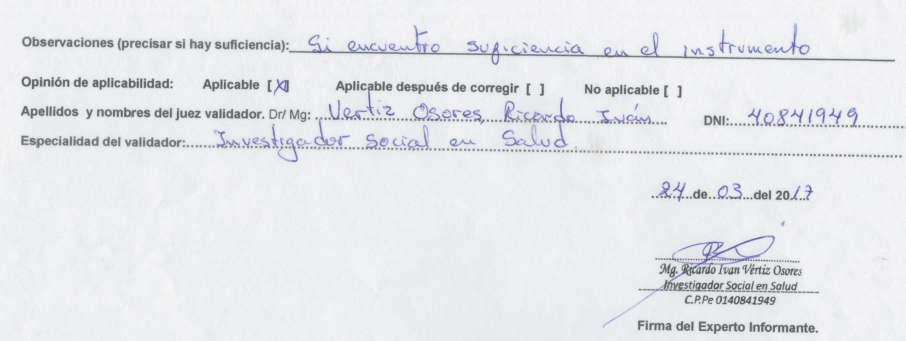 Observaciones (precisar si hay suficiencia): Si encuentro suficiencia en el instrumento
Opinión de aplicabilidad: Aplicable [X] Aplicable después de corregir [ ] No aplicable [ ]
Apellidos y nombres del juez validador. Dr/ Mg: Vertiz Osores, Ricardo Iván DNI: 40841949
Especialidad del validador: Investigador Social en Salud.
24 de 03 del 2017
Mg. Ricardo Ivan Vértiz Osores
Investigador Social en Salud
C.P.Pe 0140841949
Firma del Experto Informante.